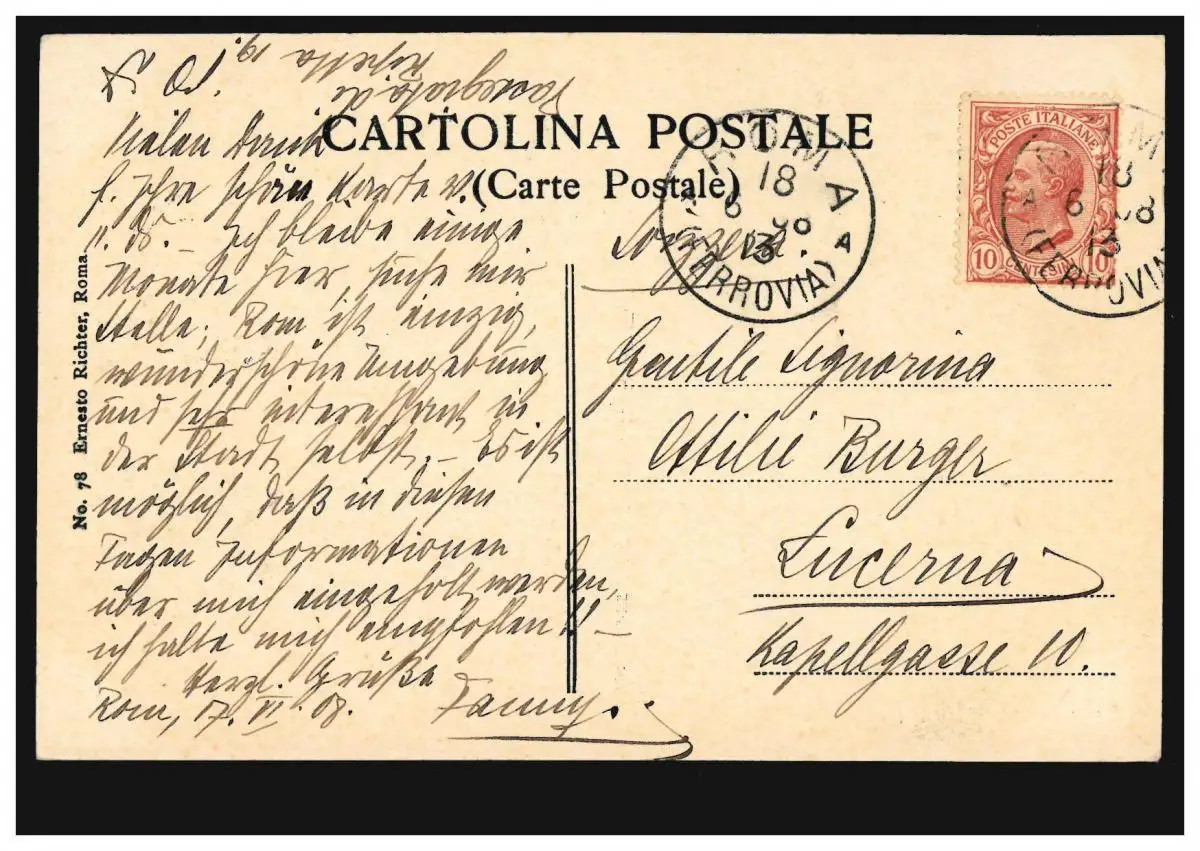 Ripetta 19
L. O!
CARTOLINA POSTALE
(Carte Postale)
Vielen Dank
f. Ihre schöne Karte v.
Ich bleibe einige
Monate hier, suche mir
Stelle; Rom ist einzig,
wunderschöne Umgebung
und sehr interessant in
der Stadt selbst. – Es ist
möglich, daß in diesen
Tagen Informationen
über mich eingeholt werden,
ich halte mich empfohlen!! –
Herzl. Grüße
Rom, 17. VI. 08. Fanny.
No. 78 Ernesto Richter, Roma.
ROMA
18
6 08
13
(FERROVIA)
A
POSTE ITALIANE
10 CENTESIMI 10
18
6 08
13
(FERROVIA
Svizzera.
Gentile Signorina
Ottilie Burger
Lucerna
Kapellgasse 10.